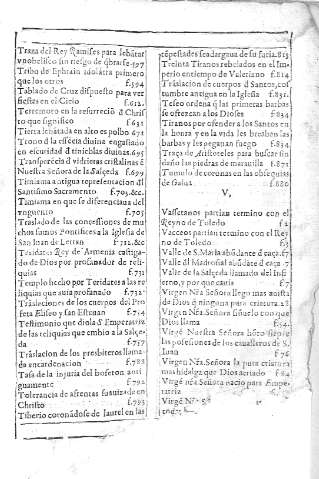 Traça del Rey Ramises para lebātar
vnobelisco sin riesgo de q̄brarse.597
Tribo de Ephrain idolatra primero
que los otros f.594
Tablado de Cruz dispuesto para ver
fiestas en el Cielo f.612.
Terremoto en la resurreciō d̄ Chris
to que significo f.632
Tierra lebātada en alto es polbo 671
Trono d̄ la essēcia diuina
en escuridad d̄ tinieblas diuinas.695
Transparēcia d̄ vidrieras cristalinas ē
Nuestra Señora de la Salçeda f.699
Timiama antigua representacion d̄l
Santissimo Sacramento f.703.&c.
Timiama en que se diferenciaua del
vnguento f.705
Traslado de las concessiones de mu
chos sumos Pontifices a la Iglesia de
San Iuan de Letran f.721.&c
Teridates Rey de Armenia castiga-
do de Dios por profanador de reli-
quias f.731
Templo hecho por Teridates a las re
liquias que auia profanado f.732
Traslaciones de los cuerpos del Pro
feta Eliseo y san Esteuan f.714
Testimonio que dio la S. Emperatriz
de las reliquias que embio a la Salçe-
da f.737
Trāslacion de los presbiteros llama-
da encardenacion f.783
Tasa de la injuria del boferon anti
guamente f.792
Tolerancia de afrentas suauizada en
Christo f.793
Tiberio coronādose de laurel en las
tēpestades se adargaua de su furia.813
Treinta Tiranos rebelados en el Im
perio en tiempo de Valeriano f.814
Trāslacion de cuerpos d̄ Santos, cos
tumbre antigua en la Iglesia f.831.
Teseo ordena q̄ las primeras barbas
se ofrezcan a los Dioses f.834
Tiranos por ofender a los Santos en
la honra y en la vida les breaban las
barbas y les pegauan fuego f.834
Traça de Aristoteles para buscar sin
daño las piedras de marauilla f.871
Tumulo de coronas en las obsequias
f.880
V,
Vassetanos partian termino con el
Reyno de Toledo f.2
Vacceos partian termino con el Rey
no de Toledo f.3
Valle de S. Maria abūdante d̄ caça.f.7
Valle d̄l Madroñal abūdāte d̄ caça.7
Valle de la Salçeda llamado del Infi
erno, y por que causa f.7
Virgen Nr̄a Señora llego mas acosta
de Dios q̄ ninguna pura criatura 22
Virgen Nr̄a. Señora siguelo con que
Dios llama f.54.
Virgē Nuestra Señora
las possesiones de los caualleros de S.
Iuan f.76
Virgen Nr̄a. Señora la pura criatura
mas hidalga que Dios a criado f.84
Virgē nr̄a Señora nacio para Empe-
ratriz
Virgē Nr̄a